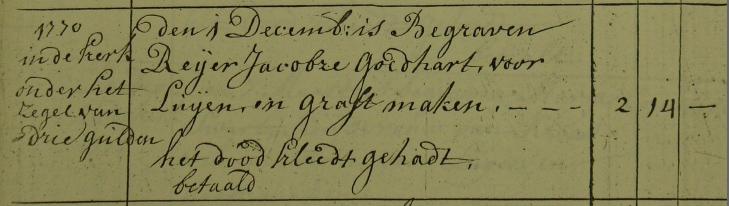 1770
in de kerk
onder het
zegel van
drie gulden
den 1 Decemb: is Begraven
Reijer Jacobze Goedhart, voor
Luijen, en graft maken. - - - 2 14 -
het dood kleedt gehadt,
betaald